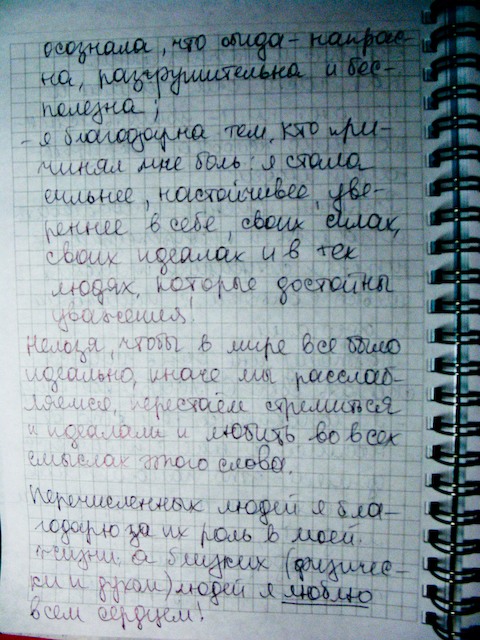 осознала, что обида - напрас-
на, разрушительна и бес-
полезна;
- я благодарна тем, кто при-
чинял мне боль: я стала
сильнее, настойчивее, уве-
реннее в себе, своих силах,
своих идеалах и в тех
людях, которые достойны
уважения!
Нельзя, чтобы в мире все было
идеально, иначе мы расслаб-
ляемся, перестаём стремиться
к идеалам и любить во всех
смыслах этого слова.
Перечисленных людей я бла-
годарю за их роль в моей
жизни, а близких (физичес-
ки и духом) людей я люблю
всем сердцем!